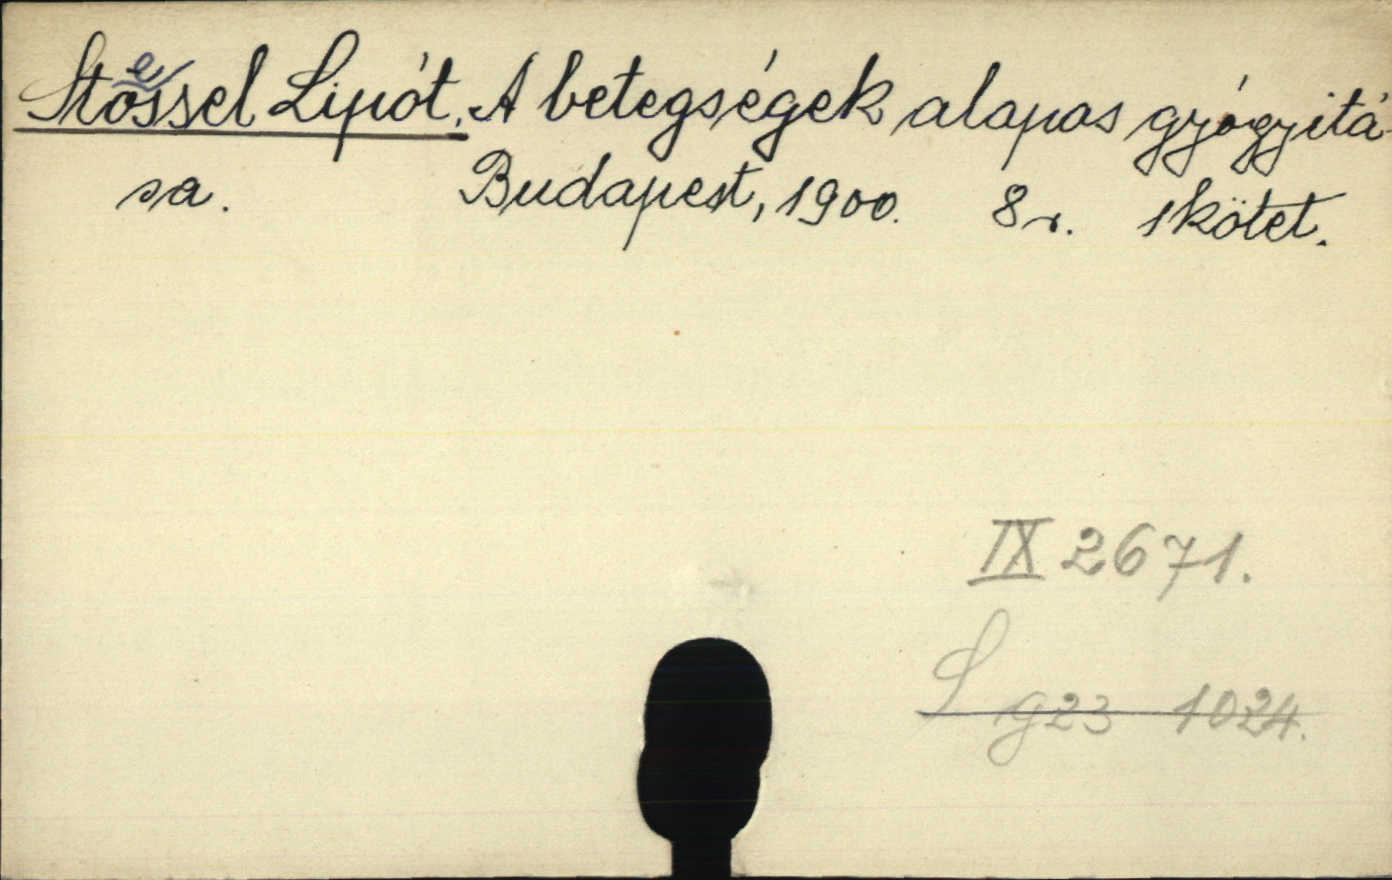 Stoessel Lipót. A betegségek alapos gyógyitá-
sa. Budapest, 1900. 8r. 1 kötet.
IX 2671.
S g23 1024.